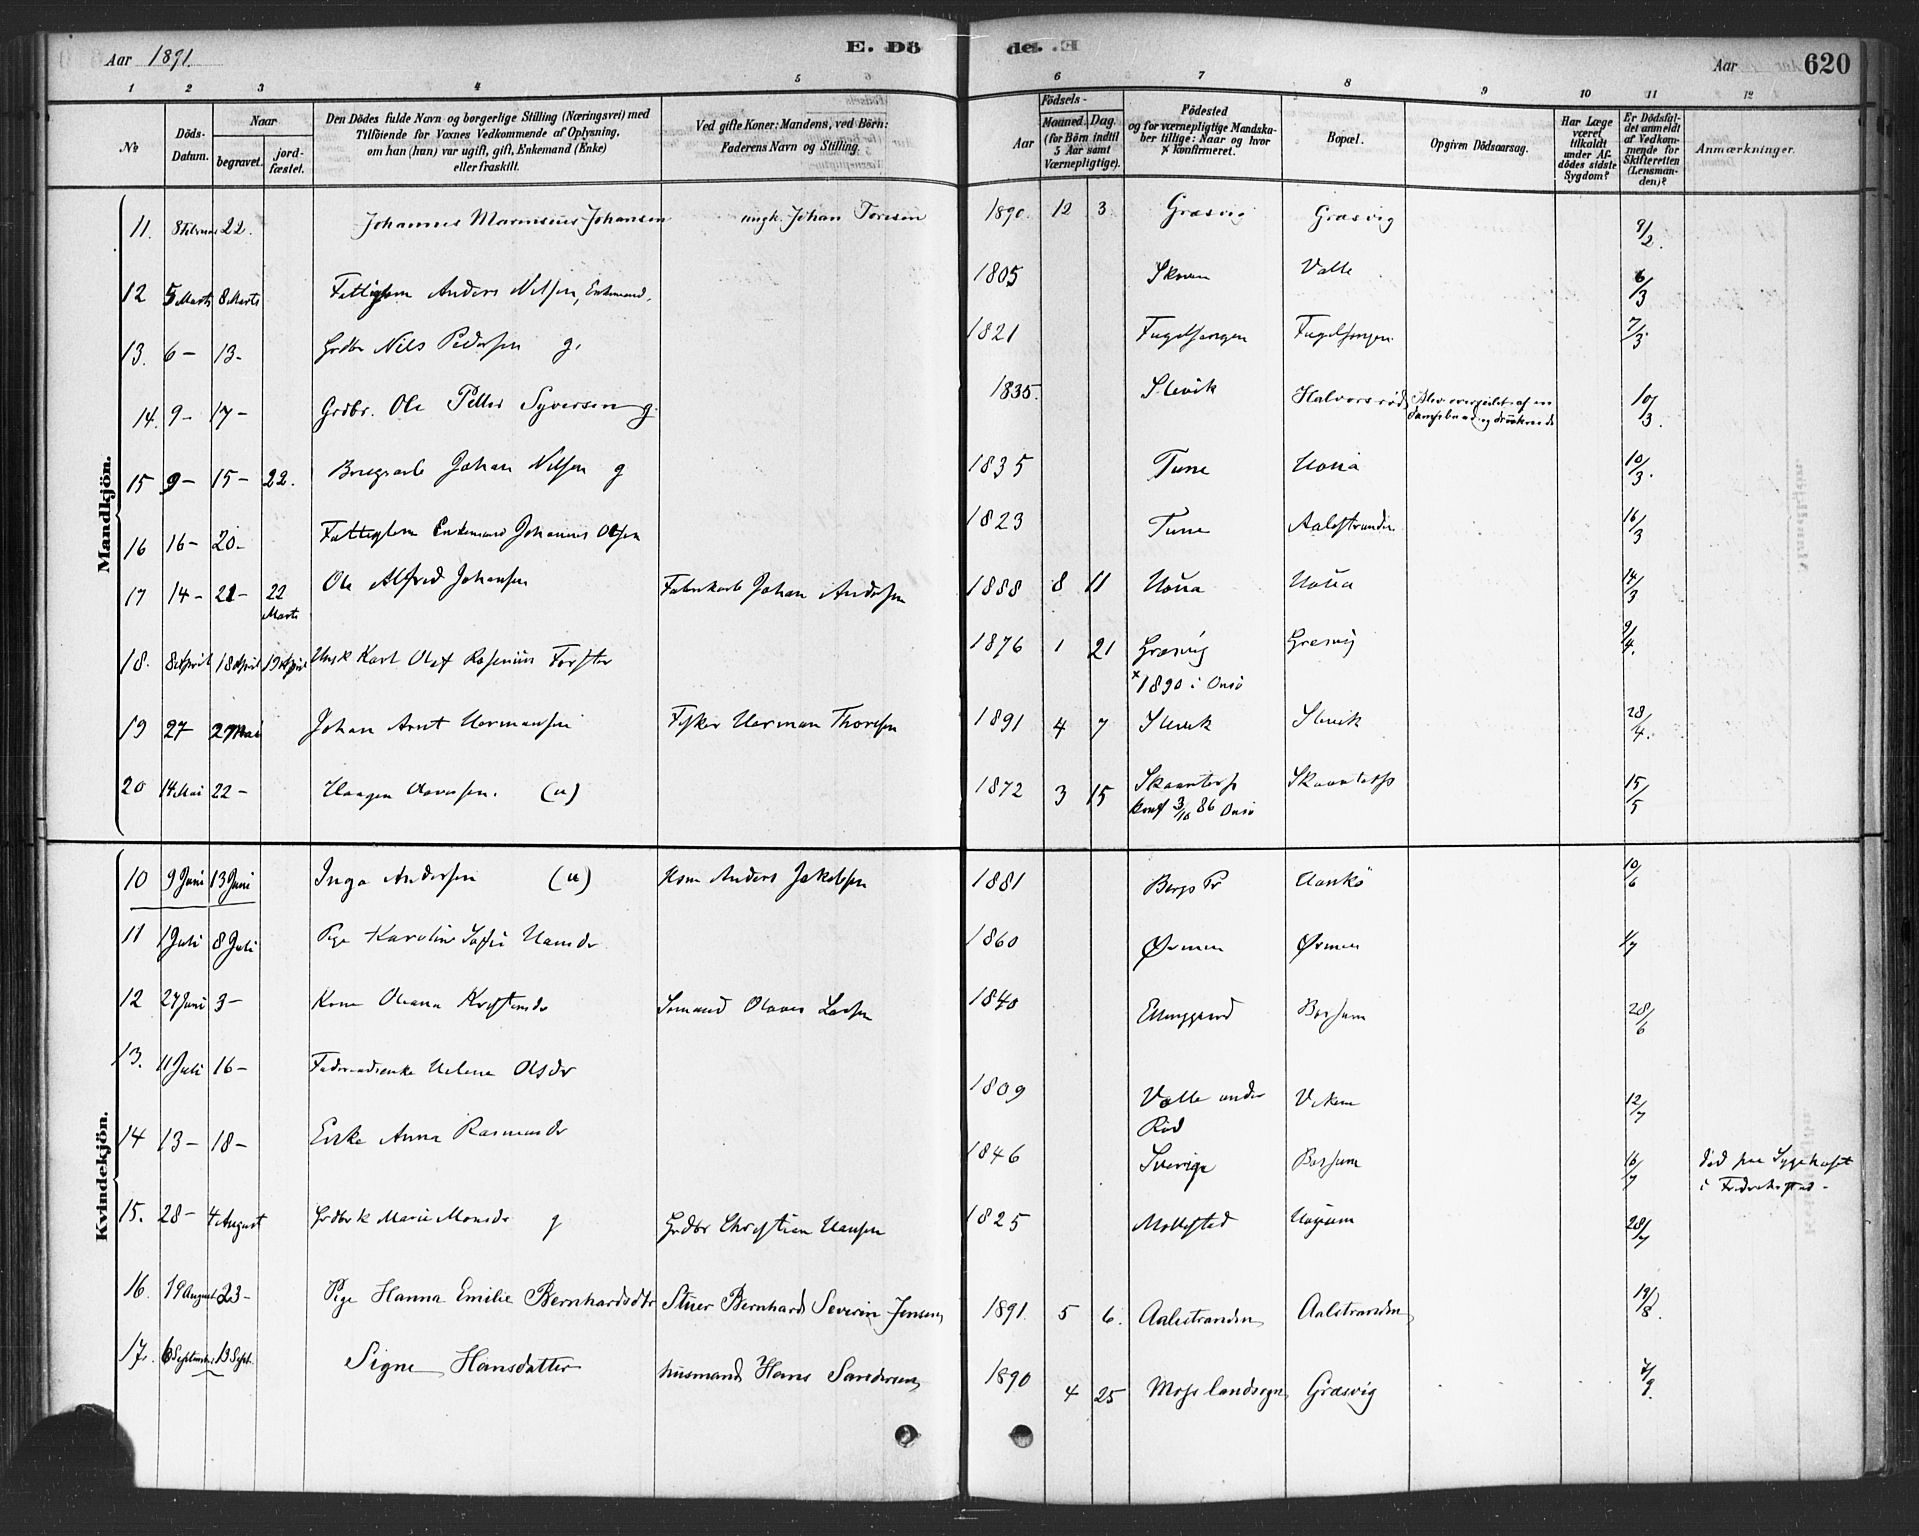 Aar 1891.
E. Dö
de. E
Aar
620
1 2 3 4 5 6 7 8 9 10 11 12
No
Döds-Datum.
Naar
begravet.
jord-fæstet.
Den Dödes fulde Navn og borgerlige Stilling (Næringsvei) med
Tilföiende for Voxnes Vedkommende af Oplysning,
om han (hun) var ugift, gift, Enkemand (Enke)
eller fraskilt.
Ved gifte Koner: Mandens, ved Börn:
Faderens Navn og Stilling.
Födsels-
Aar
Maaned. Dag.
(for Börn indtil
5 Aar samt
Værnepligtige).
Födested
og for værnepligtige Mandska-
ber tillige: Naar og hvor
x Konfirmeret.
Bopæl.
Opgiven Dödsaarsag.
Har Læge
været
tilkaldt
under Af-
dödes sidste
Sygdom?
Er Dödsfal-
det anmeldt
af Vedkom-
mende for
Skifteretten
(Lensman-
den)?
Anmærkninger.
Mandkjön.
11. 8 Februar 22. Johannes Marinsius Johansen ungk. Johan Toresen 1890. 12 3 Græsvig Græsvig 9/2.
12 5 Marts 8 Marts Fattiglem Anders Nilsen, Enkemand. 1805 Valle 6/3
13. 6 – 13 – Grdbr Nils Pedersen g. 1821 Fugelsangen Fugelsangen 7/3
14. 9 – 17 – Grdbr. Ole Petter Syversen g. 1835. Slevik Halvorsröd Blev overseilet af en Dampbaad og druknede 10/3.
15 9 – 15 – 22. Johan Nilsen g 1835 Tune Houa 10/3.
16 16 – 20 – Fattiglem Enkemand Johannes Olsen 1823 Tune Aalestranden 16/3
17 14 – 21 – 22 Marts Ole Alfred Johansen Fabrikarb Johan Andersen 1888 8 11 Houa Houa 14/3
18. 8 April 18 April 19 April Ungk Karl Olaf Rosenius Forster 1876 1 21 Græsvig Græsvig 9/4.
x 1890 i Onsö
19 27 – 2 Mai Johan Arnt Hermansen Fisker Herman Thoresen 1891 4 7 Slevik Slevik 28/4.
20 14 Mai 22 – Haagen Olavesen. (u) 1872 3 15 Skaantorp Skaantorp 15/5
konf 3/10 86 Onsö
Kvindekjön.
10 9 Juni 13 Juni Inga Andersen (u) Hsm Anders Jakobsen 1881 Borge Pr Hankö 10/6
11 1 Juli 8 Juli Pige Karoline Sofie Hansdr 1860 Ørmen Ørmen 1/7
12 27 Juni 3 – Kone Oleana Kristensdr Sömand Olaves Larsen 1840 Elinggaard Borsum 28/6
13. 11 Juli 16 – Helene Olsdr 1809 Valle under Röd Viker 12/7
14 13 – 18 – Enke Anna Rasmusdr 1846 Sverige Borsum 16/7 död paa Sygehuset
i Fredrikstad –
15. 28 – 4 August Grdbrk Marie Monsdr g Grdbr Christian Hansen 1825 Mollestad Hauum 28/7
16. 19 August 23 – Pige Hanna Emilie Bernhardsdtr Stuer Bernhard Severin Jensen 1891. 5 6. Aalestranden Aalestranden 19/8.
17. 6 September 13 Sept. Signe Hansdatter husmand Hans Sandersen 1890 4 25 Moss landsogn Græsvig 7/9.